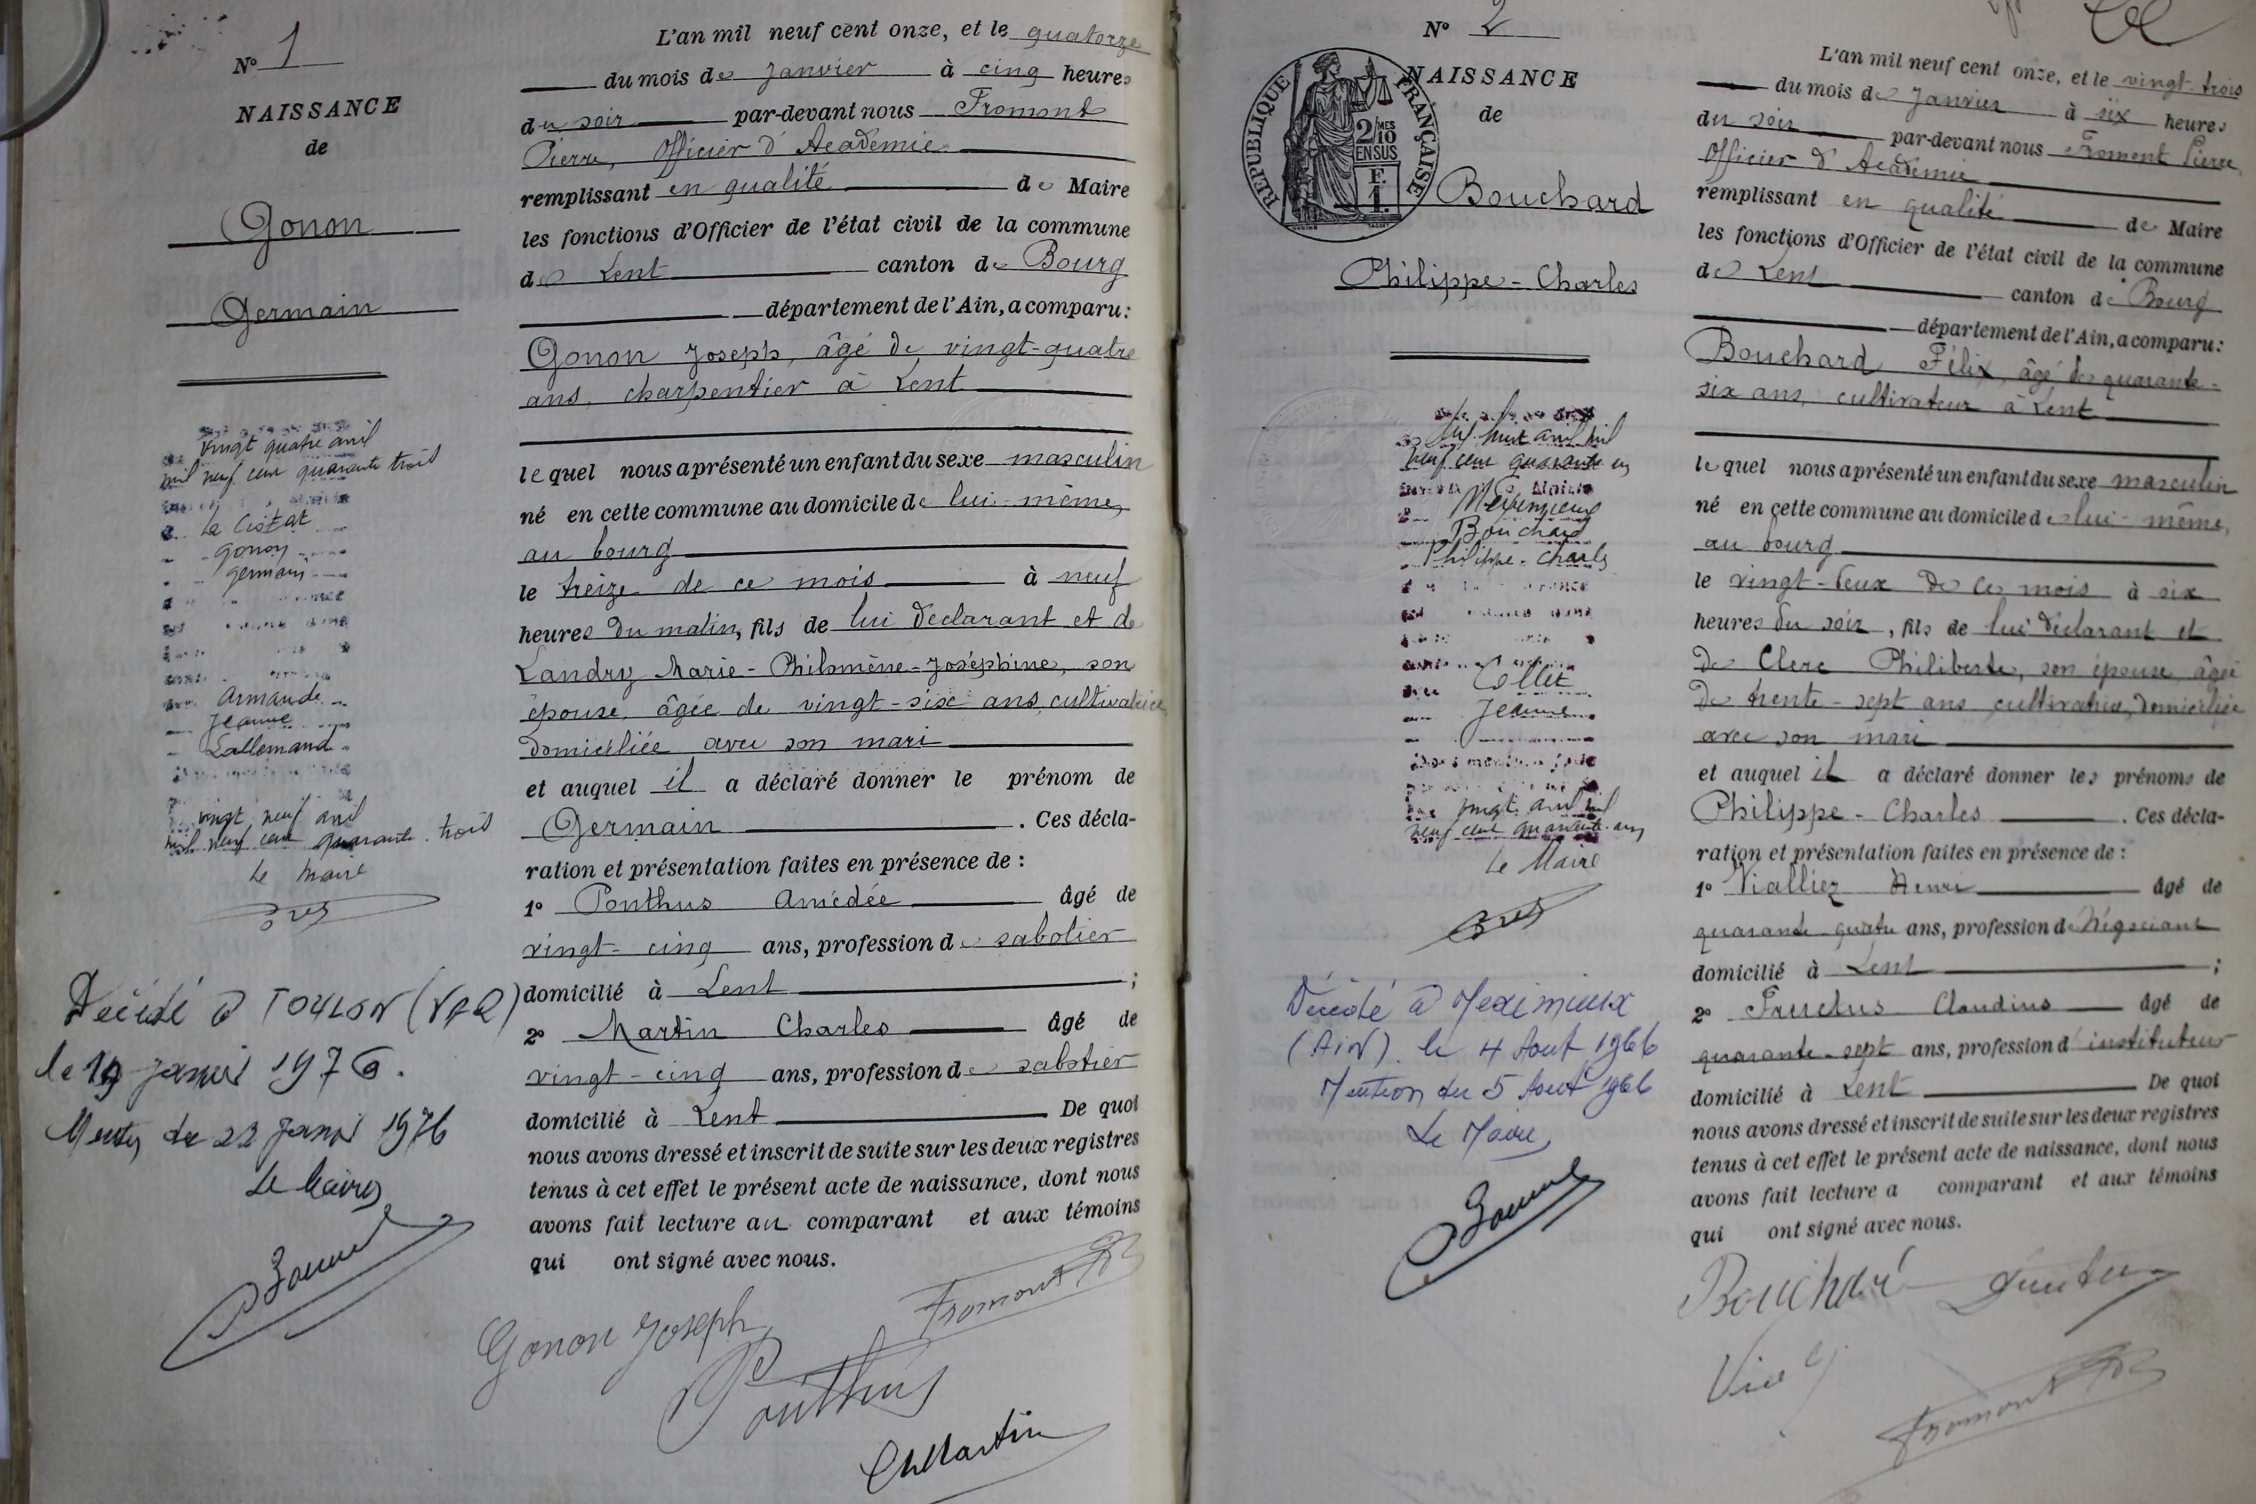 N° 1
NAISSANCE
de
Gonon
Germain
vingt quatre avril
mil neuf cent quarante trois
La Ciotat
Gonon
Germain
Armande
Jeanne
Lallemand
vingt neuf avril
mil neuf cent quarante trois
Le Maire
Décédé à TOULON (VAR)
le 19 Janvier 1976.
Mention du 22 Janvier 1976
Le Maire
L'an mil neuf cent onze, et le quatorze
du mois de Janvier à cinq heures
du soir par-devant nous Fromont
Pierre, Officier d'Académie
remplissant en qualité de Maire
les fonctions d'Officier de l'état civil de la commune
de Lent canton de Bourg
département de l'Ain, a comparu:
Gonon Joseph, âgé de vingt-quatre
ans, charpentier à Lent
lequel nous a présenté un enfant du sexe masculin
né en cette commune au domicile de lui-même,
au bourg
le treize de ce mois à neuf
heures du matin, fils de lui déclarant et de
Landry Marie-Philomène-Joséphine, son
épouse, âgée de vingt-six ans, cultivatrice
domiciliée avec son mari
et auquel il a déclaré donner le prénom de
Germain. Ces décla-
ration et présentation faites en présence de:
1° Ponthus Amédée âgé de
vingt-cinq ans, profession de sabotier
domicilié à Lent;
2° Martin Charles âgé de
vingt-cinq ans, profession de sabotier
domicilié à Lent De quoi
nous avons dressé et inscrit de suite sur les deux registres
tenus à cet effet le présent acte de naissance, dont nous
avons fait lecture au comparant et aux témoins
qui ont signé avec nous.
Gonon Joseph
Fromont
Ponthus
Ch Martin
N° 2
NAISSANCE
de
REPUBLIQUE FRANÇAISE
2/10 MES
EN SUS
F.
1.
Bouchard
Philippe-Charles
dix huit avril mil
neuf cent quarante un
Meximieux
Bouchard
Philippe-Charles
Collet
Jeanne
vingt avril mil
neuf cent quarante un
Le Maire
Décédé à Meximieux
(Ain). le 4 Aout 1966
Mention du 5 Aout 1966
Le Maire,
L'an mil neuf cent onze, et le vingt-trois
du mois de Janvier à six heures
du soir par-devant nous Fromont Pierre,
Officier d'Académie
remplissant en qualité de Maire
les fonctions d'Officier de l'état civil de la commune
de Lent canton de Bourg
département de l'Ain, a comparu:
Bouchard Félix, âgé de quarante-
six ans, cultivateur à Lent
lequel nous a présenté un enfant du sexe masculin
né en cette commune au domicile de lui-même,
au bourg
le vingt-deux de ce mois à six
heures du soir, fils de lui déclarant et
de Clerc Philiberte, son épouse, âgée
de trente-sept ans, cultivatrice, domiciliée
avec son mari
et auquel il a déclaré donner les prénoms de
Philippe-Charles. Ces décla-
ration et présentation faites en présence de:
1° Vialliez Henri âgé de
quarante-quatre ans, profession de Négociant
domicilié à Lent;
2° Fructus Claudius âgé de
quarante-sept ans, profession d'instituteur
domicilié à Lent De quoi
nous avons dressé et inscrit de suite sur les deux registres
tenus à cet effet le présent acte de naissance, dont nous
avons fait lecture a comparant et aux témoins
qui ont signé avec nous.
Bouchard
Fromont